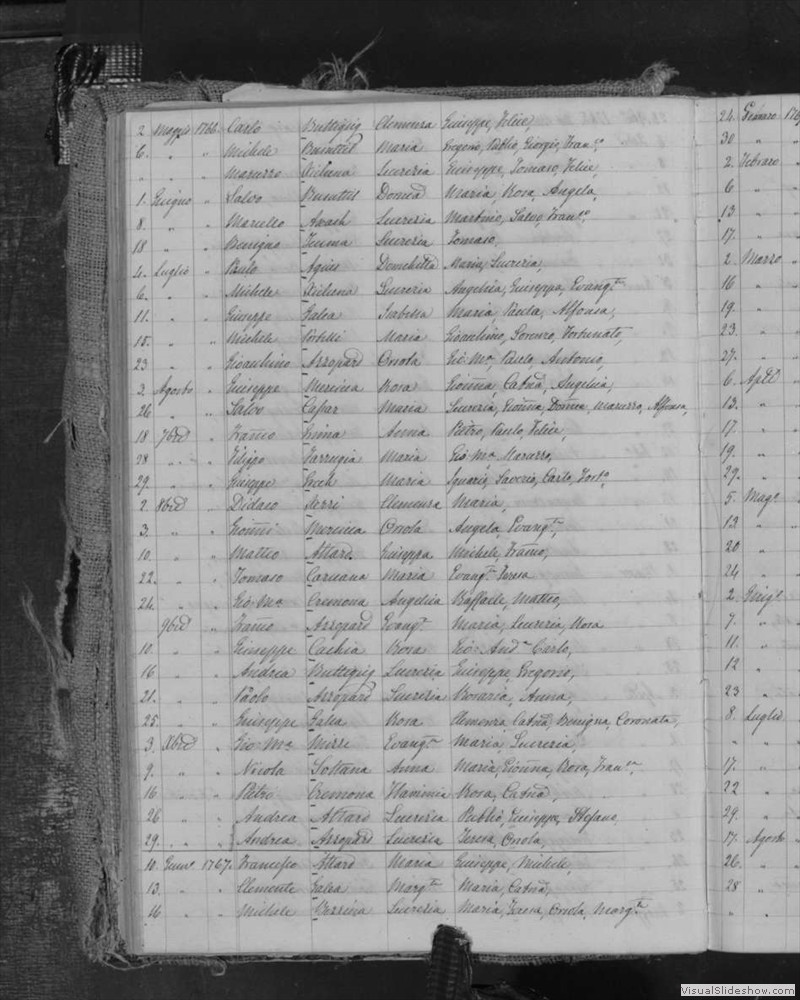 2. Maggio 1766. Carlo Buttigig Clemenza Giuseppe, Felice,
6. " " Michele Busuttil Maria Gregorio, Publio, Giorgio, Fran.co
" " " Maruzzo Xicluna Lucrezia Giuseppe, Tomaso, Felice,
1. Giugno " Salvo Busuttil Domca Maria, Rosa, Angela,
8. " " Marcello Axach Lucrezia Martino, Salvo, Fran.co
18 " " Benigno Lucrezia Tomaso,
4. Luglio " Paulo Agius Maria, Lucrezia,
6. " " Michele Xicluna Lucrezia Angelica, Giuseppa, Evang.ta
11. " " Giuseppe Galea Isabella Maria, Paula, Alfonsa,
15. " " Michele Portelli Maria Gioachino, Lorenzo, Fortunato,
23 " " Gioachino Azzopard Orsola Gio: Ma, Paulo, Antonio,
2. Agosto " Giuseppe Mercieca Rosa Gioñna, Catña, Angelica,
26 " " Salvo Casar Maria Lucrezia, Gioñna, Domca, Maruzzo, Alfonsa,
18 7bre " Frañco Grima Anna Pietro, Paulo, Felice,
28 " " Filippo Farrugia Maria Gio: Ma, Maruzzo,
29. " " Giuseppe Grech Maria Ignazio, Saverio, Carlo, Fort.o
2. 8bre " Didaco Xerri Clemenza Maria,
3. " " Gioñni Mercieca Orsola Angela, Evang.ta,
10. " " Matteo Attard Giuseppa Michele, Frañco,
22. " " Tomaso Caruana Maria Evang.ta Teresa
24. " " Gio: Ma Cremona Angelica Raffaele, Matteo,
9bre " Frañco Azzopard Evang.ta Maria, Lucrezia, Rosa
10. " " Giuseppe Cachia Rosa Gio: And.a Carlo,
16 " " Andrea Buttigig Lucrezia Giuseppe, Gregorio,
21. " " Paolo Azzopard Lucrezia Rosaria, Anna,
25. " " Giuseppe Galea Rosa Clemenza, Catña, Benigna, Coronata,
3. Xbre " Gio: Ma Mizzi Evang.ta Maria, Lucrezia,
9. " " Nicola Soltana Anna Maria, Gioñna, Rosa, Fran.ca
16 " " Pietro Cremona Flaminia Rosa, Catña,
26 " " Andrea Attard Lucrezia Publio, Giuseppe, Stefano,
29. " " Andrea Azzopard Lucrezia Teresa, Orsola,
10. Genn.o 1767. Francesco Attard Maria Giuseppe, Michele,
13. " " Clemente Galea Marg.ta Maria, Catña,
16 " " Michele Lucrezia Maria, Teresa, Orsola, Marg.ta
24. Genaro 176
30. " "
2. Febraro "
6 " "
13 " "
17. " "
2. Marzo "
16 " "
19. " "
23. " "
27. " "
6. Aple "
13. " "
17. " "
19. " "
29. " "
5. Magº
12. " "
20 " "
24 " "
2. Giugº
7. " "
11. " "
12 "
23 "
8. Luglio
" "
17. "
22 "
29. "
17. Agosto
26. "
28 "
" "
VisualSlideshow.com